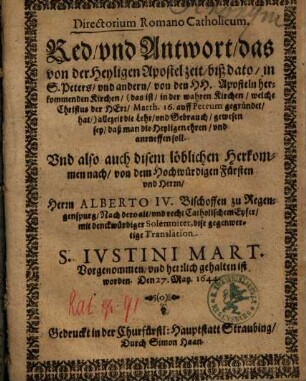 Directorium Romano Catholicum.
Red/vnd Antwort/das
von der Heyligen Apostel zeit/biß dato/in
S. Peters/vnd andern/von den HH. Aposteln her-
kommenden Kirchen/(das ist/in der wahren Kirchen/welche
Christus der HErr/Matth. 16. auff Petrum gegründet/
hat/) allezeit die Lehr/vnd Gebrauch/gewesen
sey/daß man die Heylige ehren/vnd
anrueffen soll.
Vnd also auch disem löblichen Herkom-
men nach/von dem Hochwürdigen Fürsten
vnd Herrn/
Herrn ALBERTO IV. Bischoffen zu Regen-
genspurg/Nach dero alt/vnd recht Catholischem Eyfer/
mit denckwürdiger Solemnitet, dise gegenwer-
tige Translation.
S. IVSTINI MART.
Vorgenommen/vnd herrlich gehalten ist
worden. Den 27. May. 1644.
Gedruckt in der Churfürstl: Hauptstatt Straubing/
Durch Simon Haan.